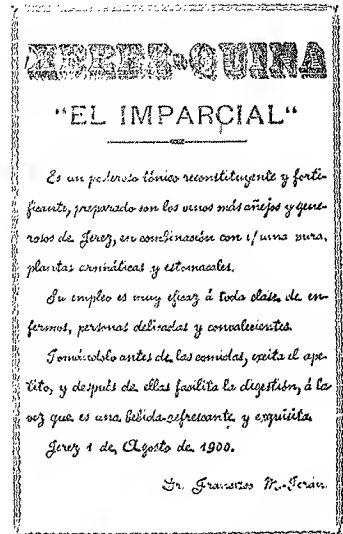 JEREZ-QUINA
"EL IMPARCIAL"
Es un poderoso tónico reconstituyente y forti-
ficante, preparado con los vinos más añejos y gene-
rosos de Jerez, en combinación con quina pura,
plantas aromáticas y estomacales.
Su empleo es muy eficaz á toda clase de en-
fermos, personas delicadas y convalecientes.
Tomándolo antes de las comidas, excita el ape-
tito, y después de ellas facilita la digestión, á la
vez que es una bebida refrescante y exquisita.
Jerez 1 de Agosto de 1900.
Dr. Francisco M.